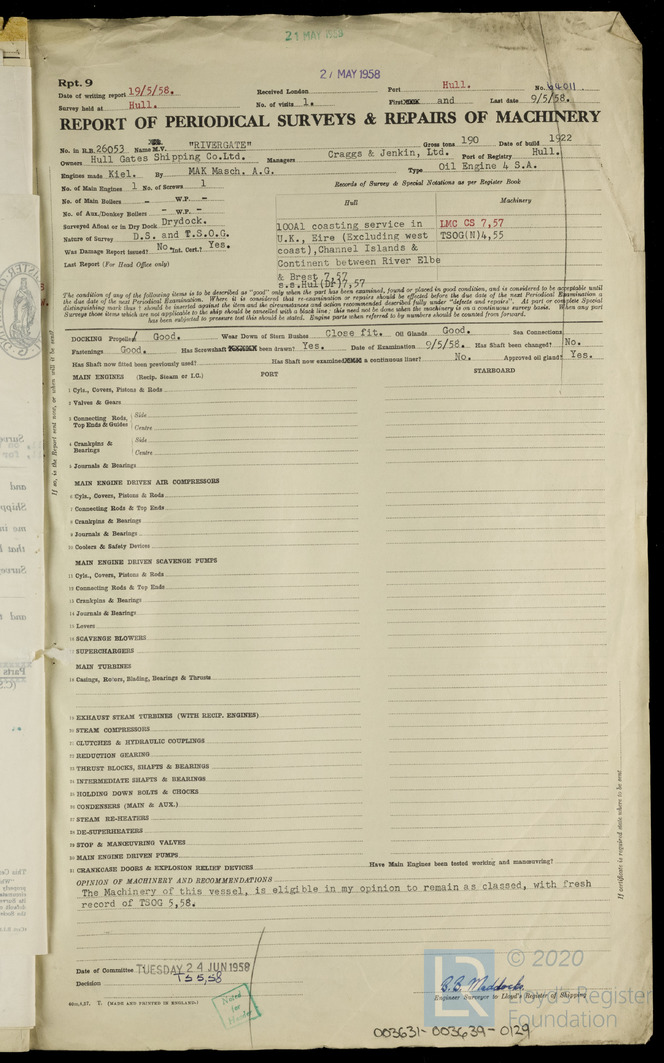 21 MAY 1958
27 MAY 1958
Rpt. 9
Date of writing report 19/5/58. Received London Port Hull. No. 64011.
Survey held at Hull. No. of visits 1. First and Last date 9/5/58.
REPORT OF PERIODICAL SURVEYS & REPAIRS OF MACHINERY
No. in R.B. 26053 Name M.V. "RIVERGATE" Gross tons 190 Date of build 1922
Owners Hull Gates Shipping Co.Ltd. Managers Craggs & Jenkin, Ltd. Port of Registry Hull.
Engines made Kiel. By MAK Masch. A.G. Type Oil Engine 4 S.A.
No. of Main Engines 1 No. of Screws 1 Records of Survey & Special Notations as per Register Book
No. of Main Boilers - W.P. -
Hull Machinery
No. of Aux/Donkey Boilers - W.P. -
Surveyed Afloat or in Dry Dock Drydock.
Nature of Survey D.S. and T.S.O.G.
Was Damage Report issued? No. Int. Cert.? Yes.
Last Report (For Head Office only)
100A1 coasting service in LMC CS 7,57
U.K., Eire (Excluding west TSOG(N)4,55
coast),Channel Islands &
Continent between River Elbe
& Brest 7,57
s.s.Hul(Dr)7,57
The condition of any of following items is to be described as "good" only when the part has been examined, found or placed in good condition, and is considered to be acceptable until
the due date of the next Periodical Examination. Where it is considered that re-examination or repairs should be effected before the due date of the next Periodical Examination a
distinguishing mark thus † should be inserted against the item and the circumstances and action recommended described fully under "defects and repairs". At part or complete Special
Surveys those items which are not applicable to the ship should be cancelled with a black line; this need not be done when the machinery is on a continuous survey basis. When any part
has been subjected to pressure test this should be stated. Engine parts when referred to by numbers should be counted from forward.
DOCKING Propeller Good. Wear Down of Stern Bushes Close fit. Oil Glands Good. Sea Connections
Fastenings Good. Has Screwshaft been drawn? Yes. Date of Examination 9/5/58. Has Shaft been changed? No.
Has Shaft now fitted been previously used? Has Shaft now examined a continuous liner? No. Approved oil gland? Yes.
MAIN ENGINES (Recip. Steam or I.C.) PORT STARBOARD
1 Cyls., Covers, Pistons & Rods
2 Valves & Gears
3 Connecting Rods, Top Ends & Guides Side
Centre
4 Crankpins & Bearings Side
Centre
5 Journals & Bearings
MAIN ENGINE DRIVEN AIR COMPRESSORS
6 Cyls., Covers, Pistons & Rods
7 Connecting Rods & Top Ends
8 Crankpins & Bearings
9 Journals & Bearings
10 Coolers & Safety Devices
MAIN ENGINE DRIVEN SCAVENGE PUMPS
11 Cyls., Covers, Pistons & Rods
12 Connecting Rods & Top Ends
13 Crankpins & Bearings
14 Journals & Bearings
15 Levers
16 SCAVENGE BLOWERS
17 SUPERCHARGERS
MAIN TURBINES
18 Casings, Rotors, Blading, Bearings & Thrusts
19 EXHAUST STEAM TURBINES (WITH RECIP. ENGINES)
20 STEAM COMPRESSORS
21 CLUTCHES & HYDRAULIC COUPLINGS
22 REDUCTION GEARING
23 THRUST BLOCKS, SHAFTS & BEARINGS
24 INTERMEDIATE SHAFTS & BEARINGS
25 HOLDING DOWN BOLTS & CHOCKS
26 CONDENSERS (MAIN & AUX.)
27 STEAM RE-HEATERS
28 DE-SUPERHEATERS
29 STOP & MANŒUVRING VALVES
30 MAIN ENGINE DRIVEN PUMPS
31 CRANKCASE DOORS & EXPLOSION RELIEF DEVICES Have Main Engines been tested working and manœuvring?
OPINION OF MACHINERY AND RECOMMENDATIONS
The Machinery of this vessel, is eligible in my opinion to remain as classed, with fresh
record of TSOG 5,58.
Date of Committee TUESDAY 24 JUN 1958
Decision TS 5,58
B.B. Maddocks.
Engineer Surveyor to Lloyd's Register of Shipping
(MADE AND PRINTED IN ENGLAND.)
Noted
for
Header
003631-003639-0129
If certificate is required state where to be sent
LR
© 2020
Lloyd's Register
Foundation